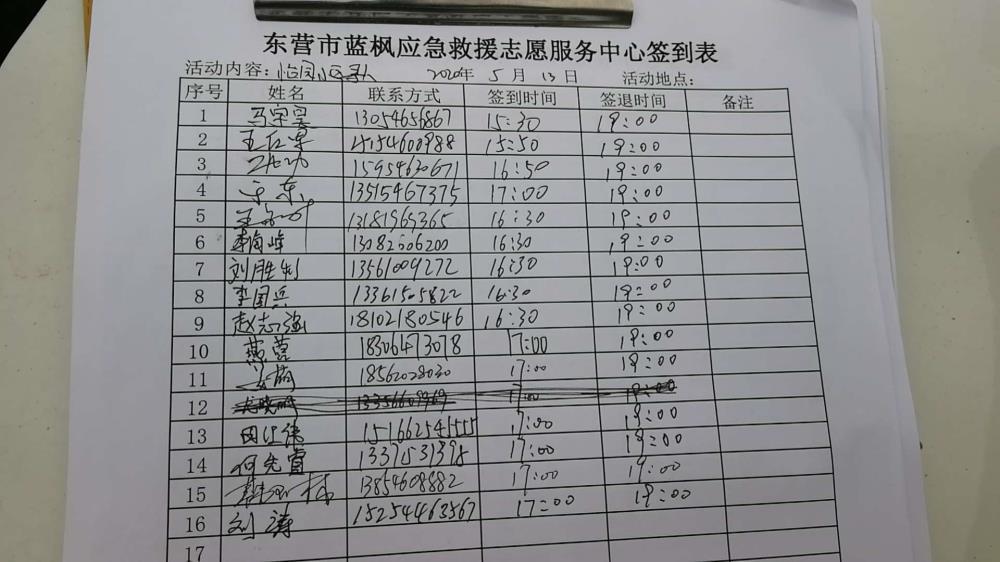 东营市蓝枫应急救援志愿服务中心签到表
活动内容: 2020年 5 月 13日 活动地点:
序号 姓名 联系方式 签到时间 签退时间 备注
1 马宇昊 13054656867 15:30 19:00
2 15:50 19:00
3 15954630671 16:50 19:00
4 于东 13515467375 17:00 19:00
5 13181965365 16:30 19:00
6 13082606200 16:30 19:00
7 刘胜利 13561009272 16:30 19:00
8 李国兵 13361505822 16:30 19:00
9 赵志强 18102180546 16:30 19:00
10 燕蕾 18306473078 17:00 19:00
11 18562028030 17:00 19:00
12 17:00 19:00
13 15166254555 17:00 19:00
14 何先富 13375313798 17:00 19:00
15 13854608882 17:00 19:00
16 刘涛 15254463567 17:00 19:00
17